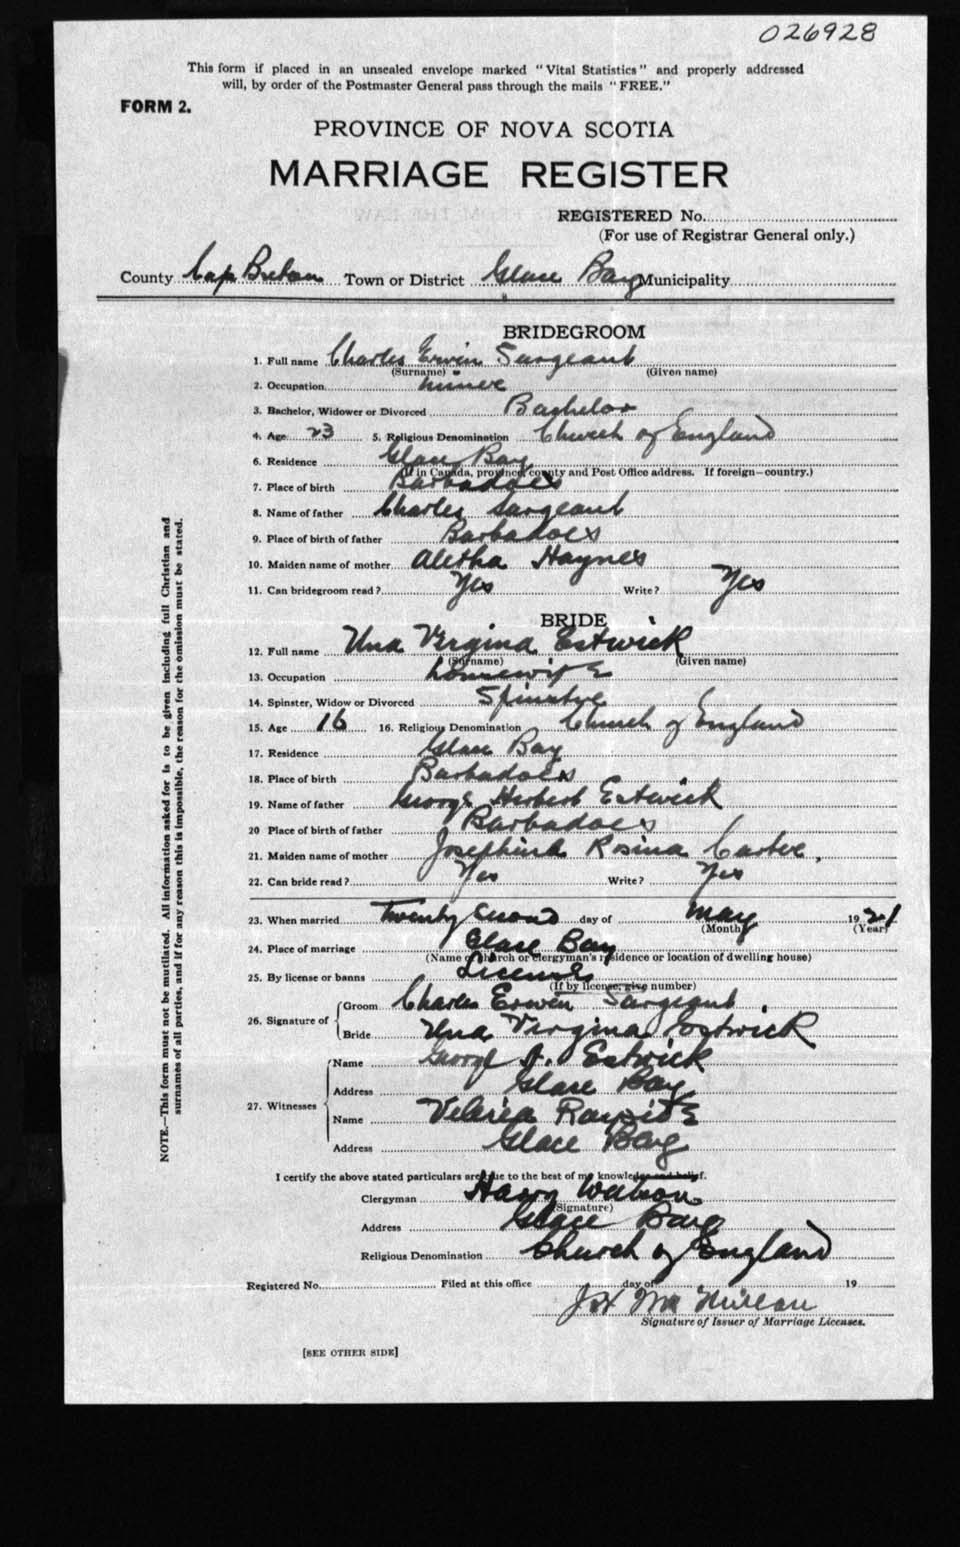 026928
This form if placed in an unsealed envelope marked "Vital Statistics" and properly addressed
will, by order of the Postmaster General pass through the mails "FREE."
FORM 2.
PROVINCE OF NOVA SCOTIA
MARRIAGE REGISTER
REGISTERED No.
(For use of Registrar General only.)
County Cap Breton Town or District Glace Bay Municipality
BRIDEGROOM
1. Full name Charles Erwin Sargeant
(Surname) (Given name)
2. Occupation miner
3. Bachelor, Widower or Divorced Bachelor
4. Age 23 5. Religious Denomination Church of England
6. Residence Glace Bay
(If in Canada, province, county and Post Office address. If foreign—country.)
7. Place of birth Barbadoes
8. Name of father Charles Sargeant
9. Place of birth of father Barbadoes
10. Maiden name of mother Aletha Haynes
11. Can bridegroom read? Yes Write? Yes
BRIDE
12. Full name Una Virgina Estwick
(Surname) (Given name)
13. Occupation housewife
14. Spinster, Widow or Divorced Spinster
15. Age 16 16. Religious Denomination Church of England
17. Residence Glace Bay
18. Place of birth Barbadoes
19. Name of father George Herbert Estwick
20 Place of birth of father Barbadoes
21. Maiden name of mother Rosina Carter
22. Can bride read? Yes Write? Yes
23. When married Twenty Second day of May 1921
(Month) (Year)
24. Place of marriage Glace Bay
(Name of church or clergyman's residence or location of dwelling house)
25. By license or banns License
(If by license, give number)
26. Signature of Groom Charles Erwin Sargeant
Bride Una Virgina Estwick
27. Witnesses Name George H. Estwick
Address Glace Bay
Name
Address Glace Bay
I certify the above stated particulars are true to the best of my knowledge and belief.
Clergyman Harry Watson
(Signature)
Address Glace Bay
Religious Denomination Church of England
Registered No. Filed at this office day of 19
Signature of Issuer of Marriage Licenses.
[SEE OTHER SIDE]
NOTE.—This form must not be mutilated. All information asked for is to be given including full Christian and
surnames of all parties, and if for any reason this is impossible, the reason for the omission must be stated.